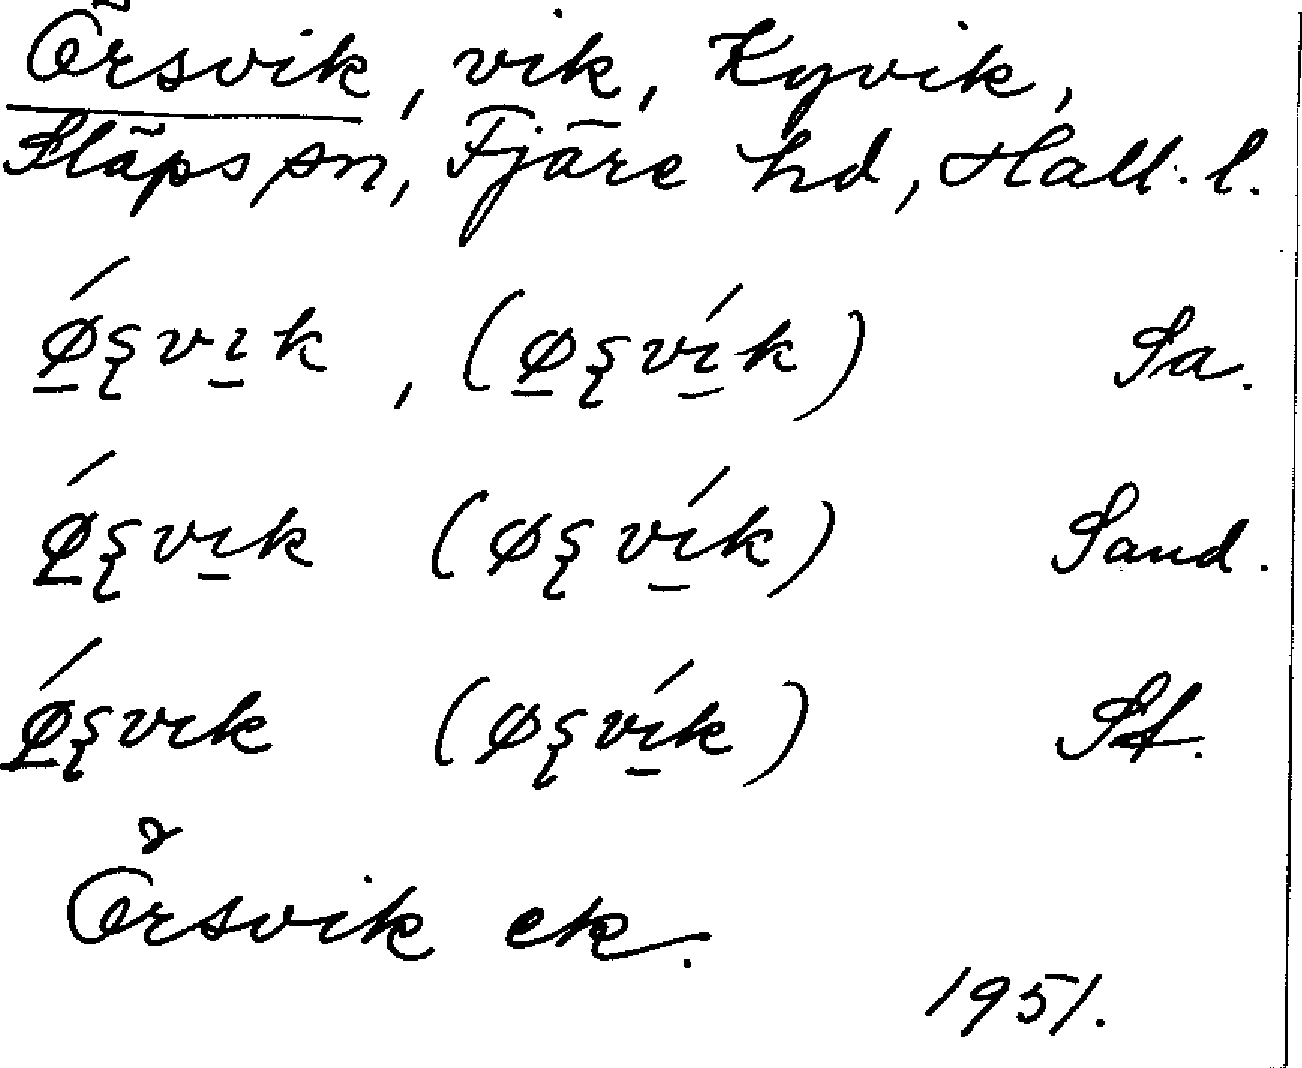 Örsvik, vik, Kyvik,
Släps sn, Fjäre hd, Hall. l.
ǿ̲ʂvı̲k, (ø̲ʂví̲k) Sa.
ǿ̲ʂvı̲k (øʂví̲k) Sand.
ǿ̲ʂvık (øʂví̲k) Sf.
Örsvik ek.
1951.